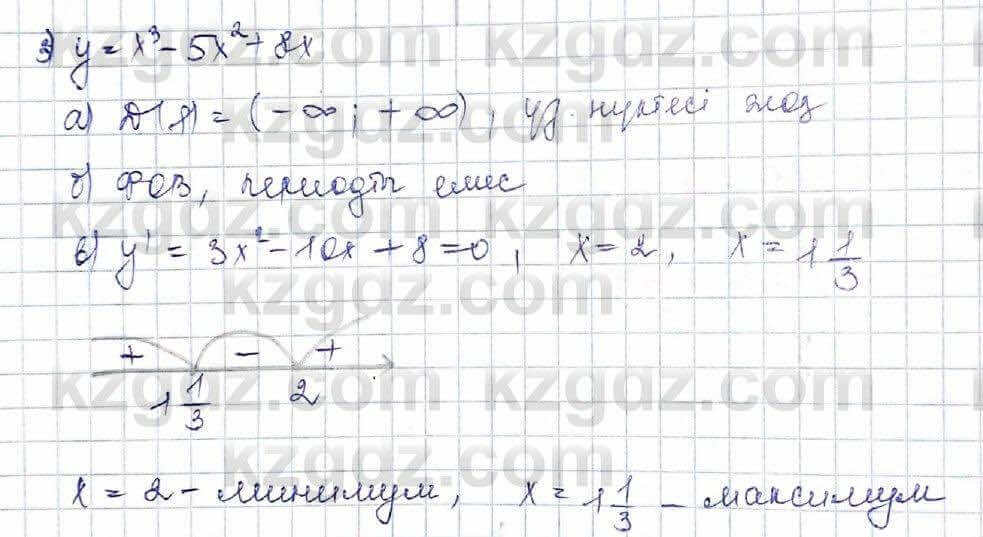 3) y = x³ - 5x² + 8x
а) D(f) = (-∞; +∞), үз. нүктесі жоқ
б) ФОВ, периодты емес
в) y' = 3x² - 10x + 8 = 0, x = 2, x = 1 1/3
+ - +
1 1/3 2
x = 2 - минимум, x = 1 1/3 - максимум
kzgdz.com